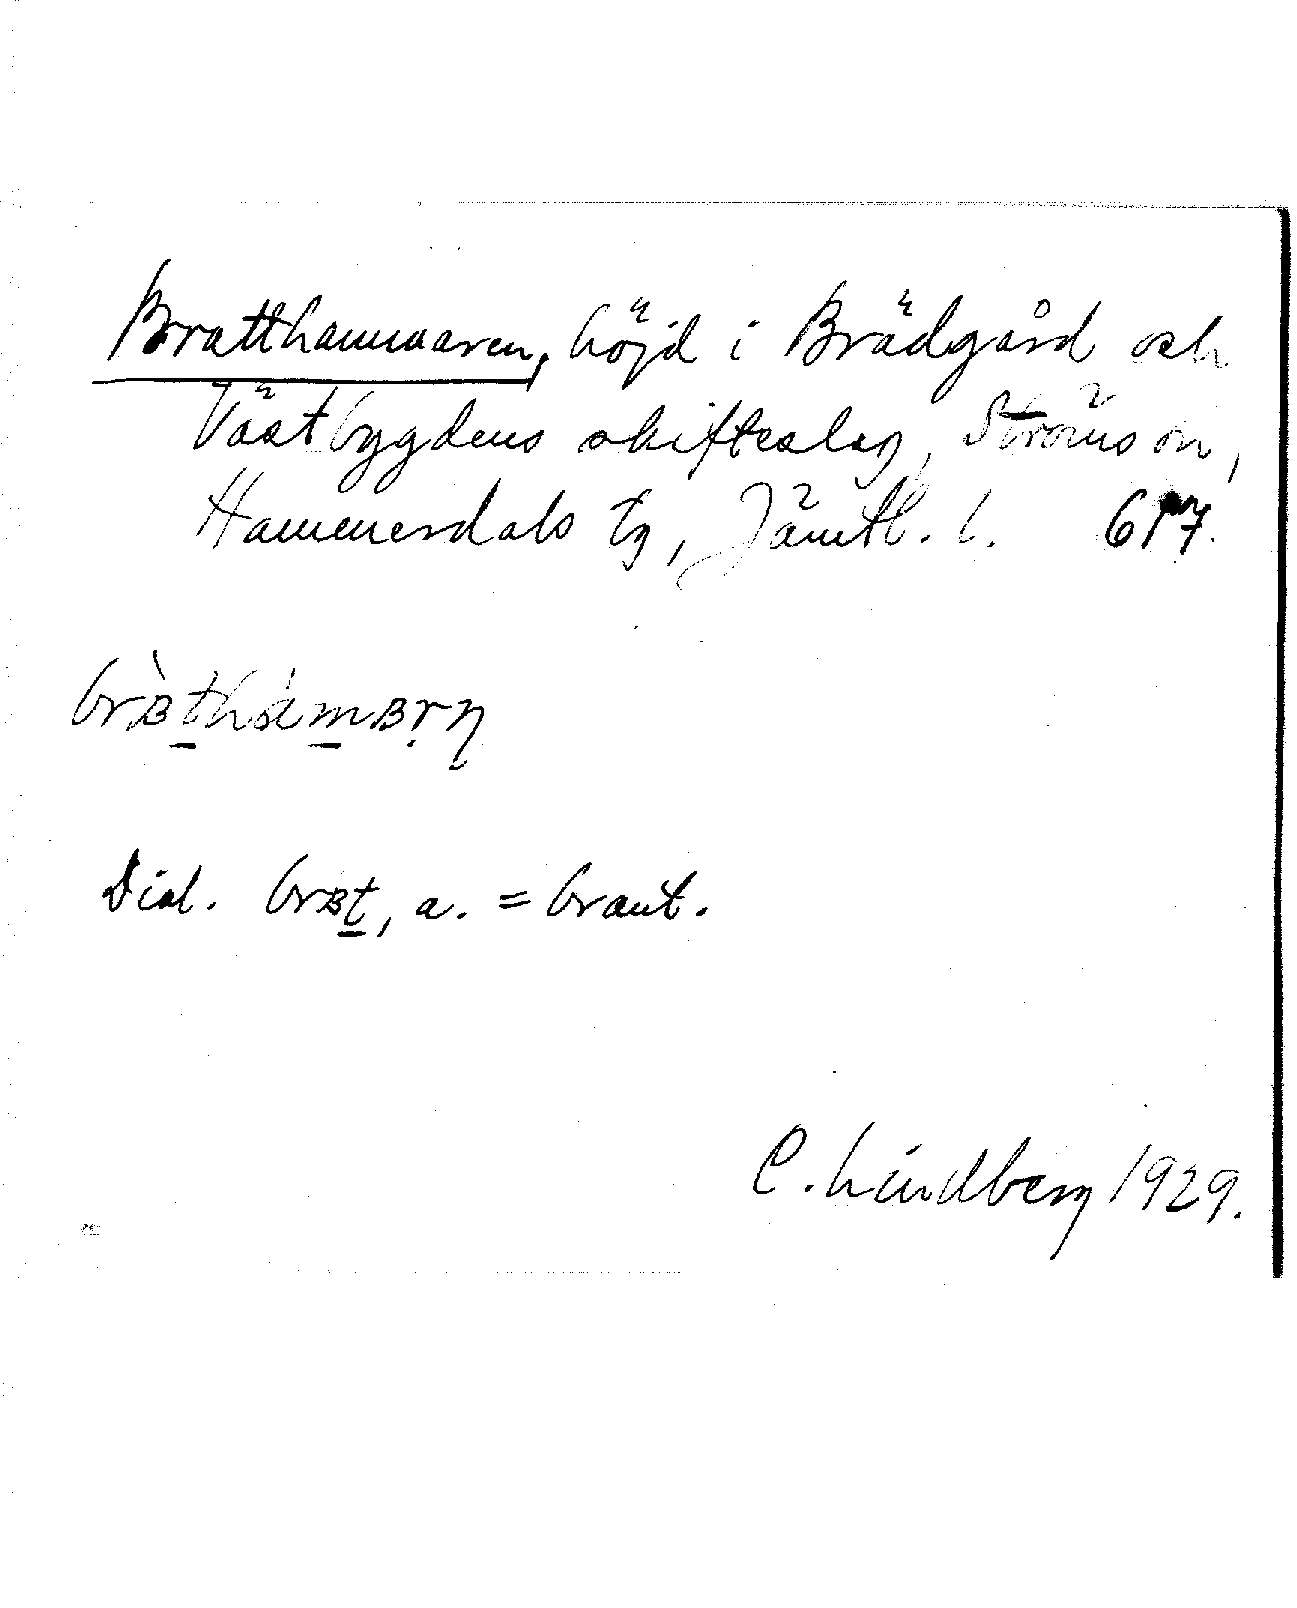 Bratthammaren, höjd i Brädgård och
Västbygdens skifteslag, Ströms sn,
Hammerdals tg, Jämtl. l. 617.
brɐ̀tha̍mɐrn̥
Dial. brɐt, a. = brant.
C. Lindberg 1929.